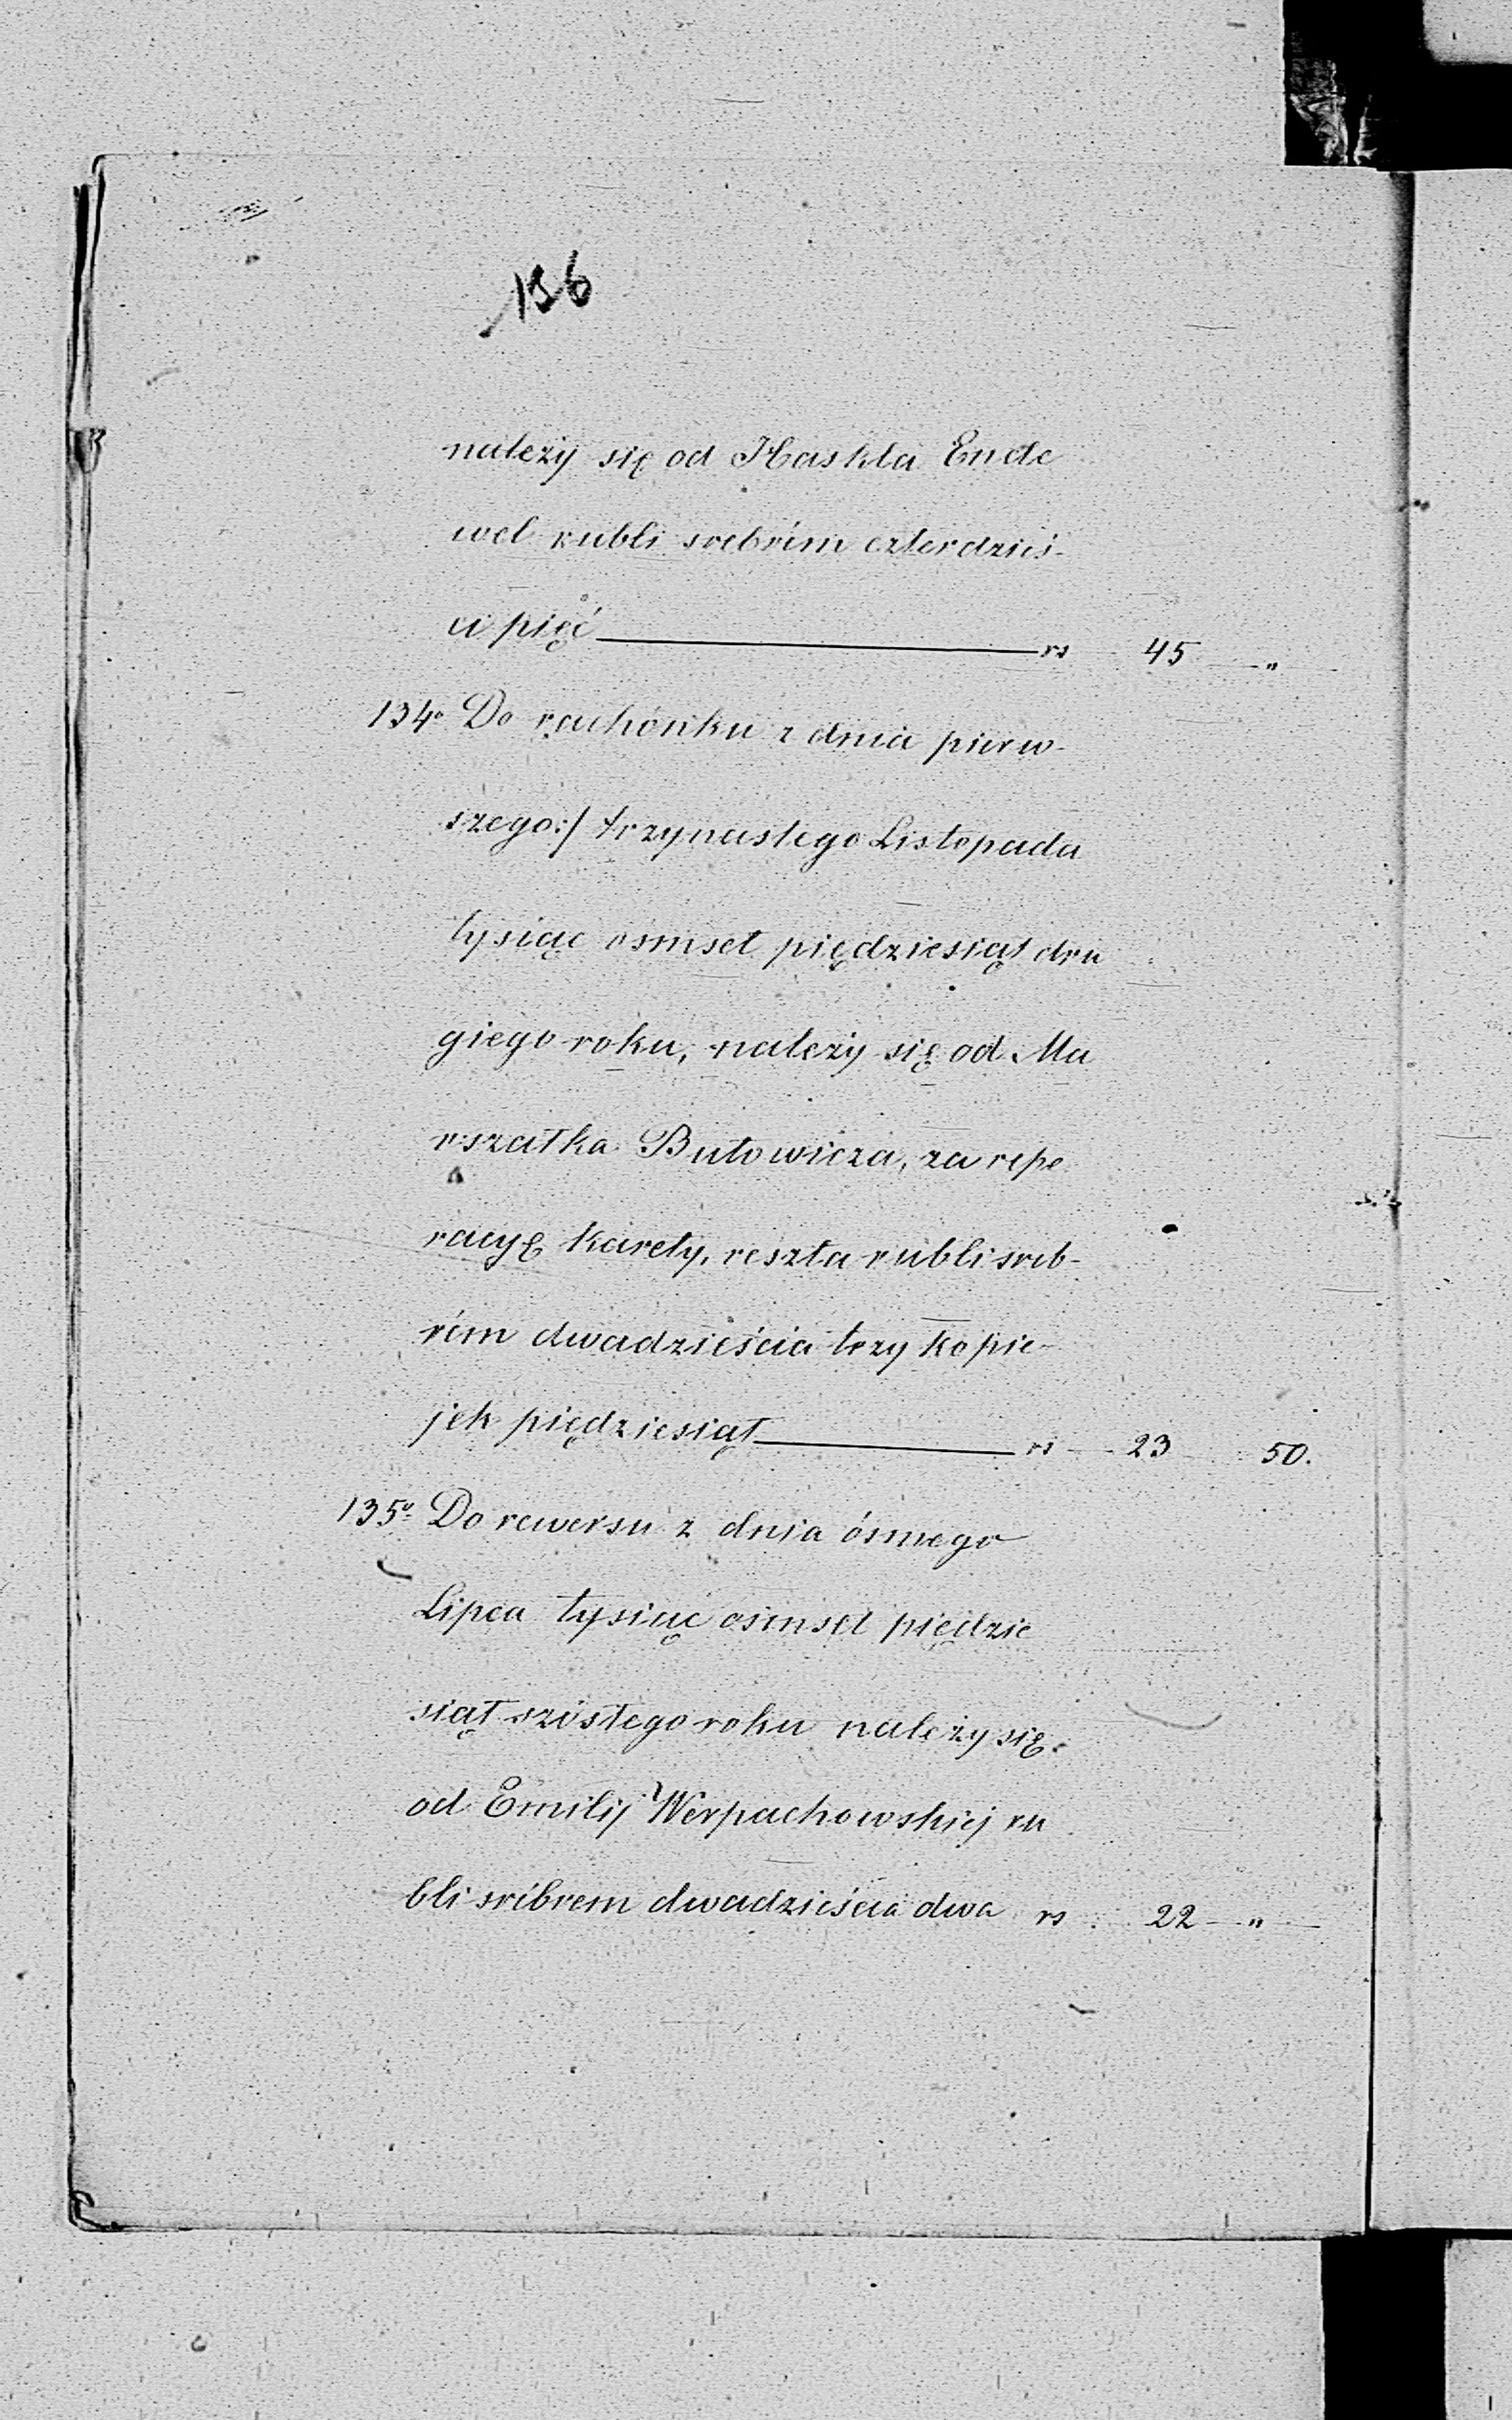 136
należy się od Haskla Ende
wel rubli srebrém czterdzieś-
ci pięć rs 45 "
134º Do rachónku z dnia pierw-
szego:/ trzynastego Listopada
tysiąc osmset piędziesiąt dru
giego roku, należy się od Ma
rszałka Butowicza, za repe
racyę karety, reszta rubli sreb-
rém dwadzieścia trzy kopie-
jek piędziesiąt rs 23 50.
135º Do rewersu z dnia ósmego
Lipca tysiąc ośmset piędzie
siąt szóstego roku należy się
od Emilij Werpachowskiej ru
bli srébrem dwadzieścia dwa rs 22 "